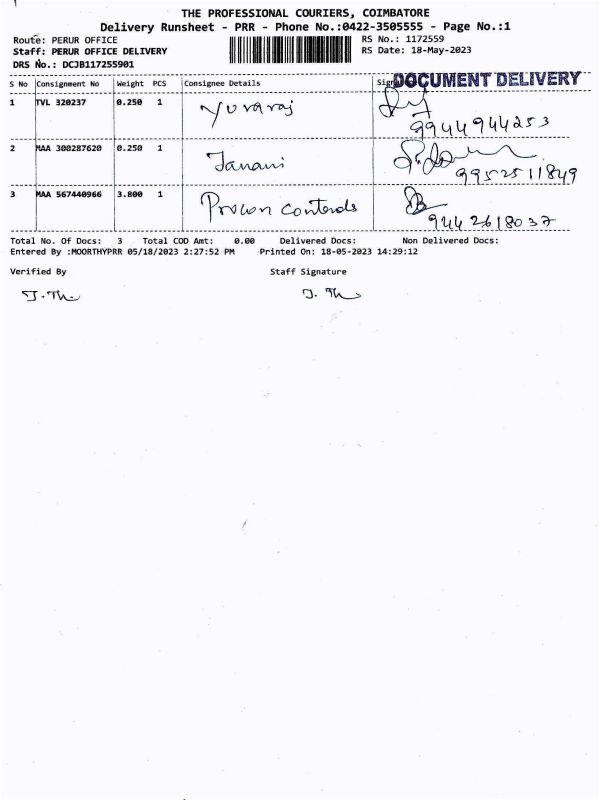 THE PROFESSIONAL COURIERS, COIMBATORE
Delivery Runsheet - PRR - Phone No.:0422-3505555 - Page No.:1
Route: PERUR OFFICE RS No.: 1172559
Staff: PERUR OFFICE DELIVERY RS Date: 18-May-2023
DRS No.: DCJB117255901
DOCUMENT DELIVERY
S No Consignment No Weight PCS Consignee Details
1 TVL 320237 0.250 1 Yuvaraj
9944944253
2 MAA 308287620 0.250 1 Janani
9952511849
3 MAA 567440966 3.800 1
9442618037
Total No. Of Docs: 3 Total COD Amt: 0.00 Delivered Docs: Non Delivered Docs:
Entered By :MOORTHYPRR 05/18/2023 2:27:52 PM Printed On: 18-05-2023 14:29:12
Verified By Staff Signature